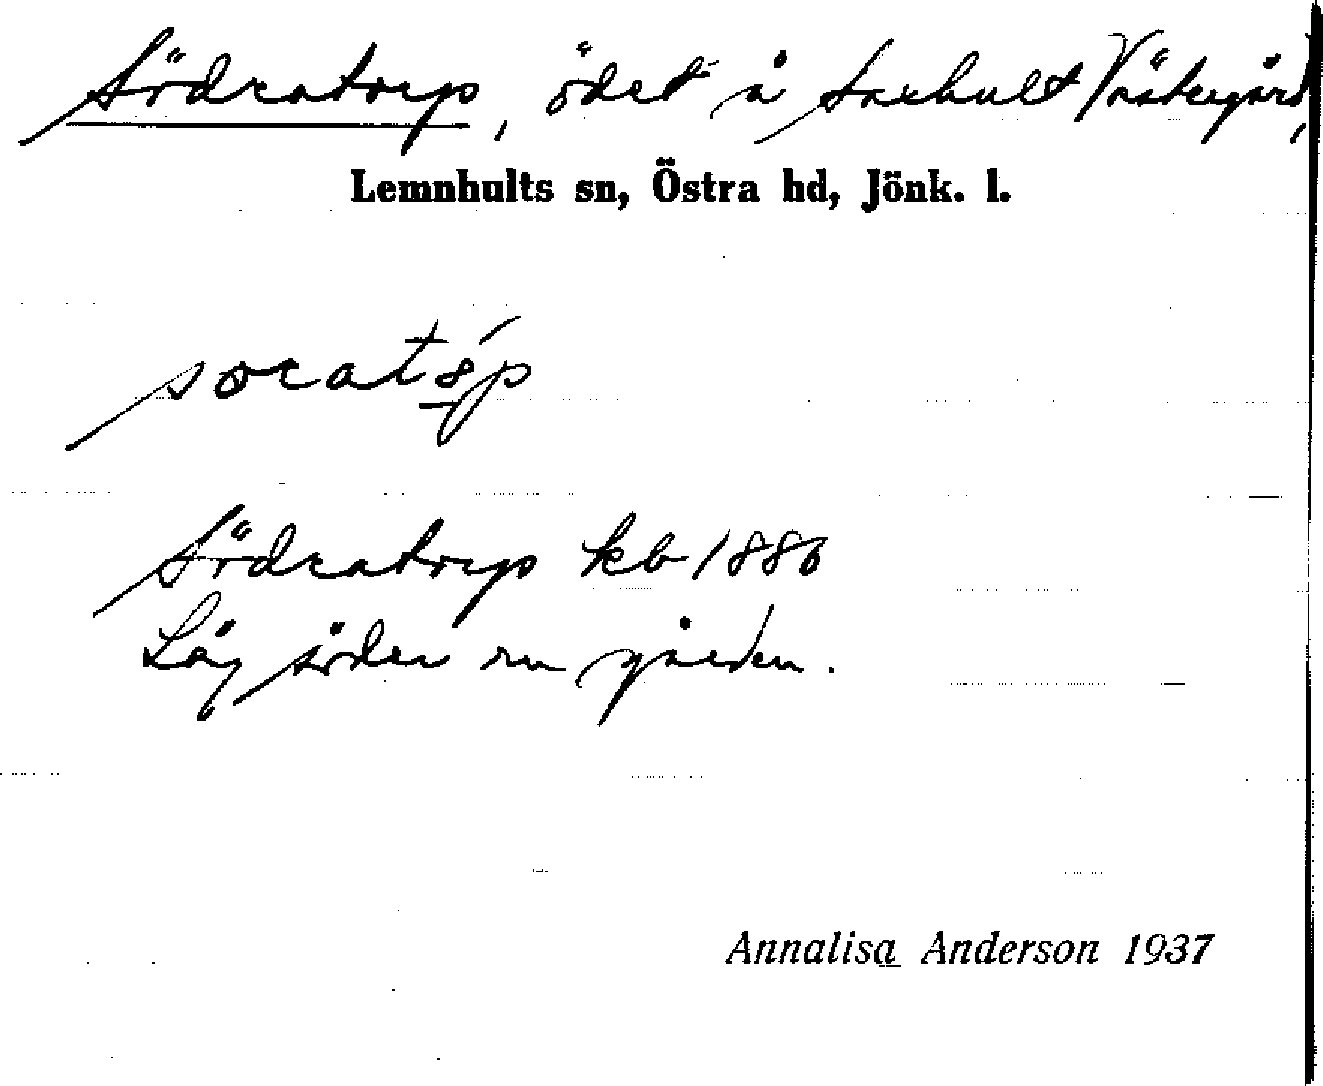 Södratorp, ödet å Saxhult Västergård,
Lemnhults sn, Östra hd, Jönk. l.
Södratorp kb 1886
Låg söder om gården.
Annalisa Anderson 1937